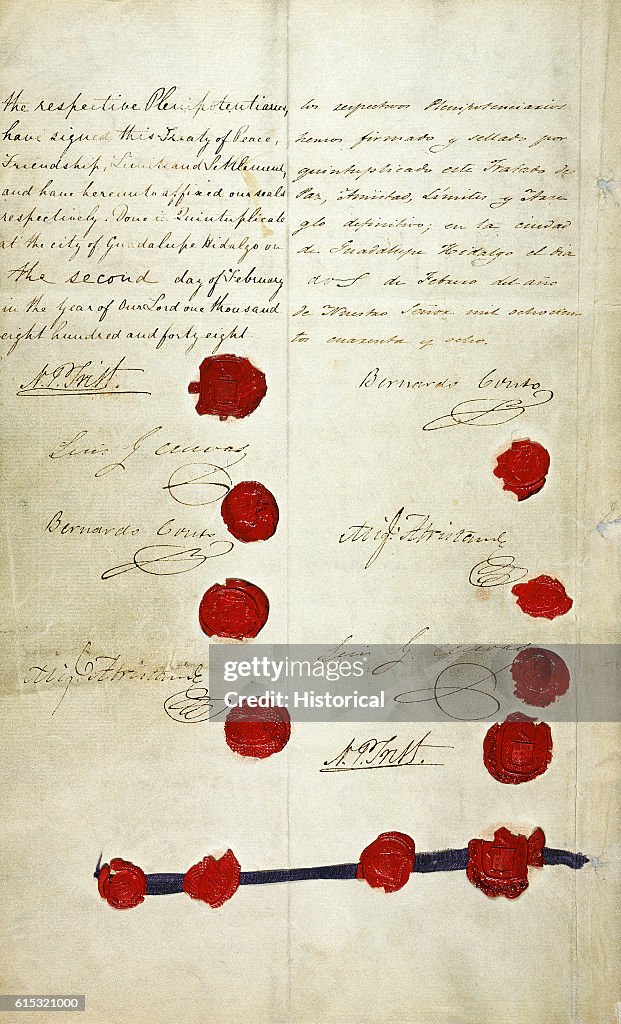 the respective Plenipotentiaries,
have signed this Treaty of Peace,
Friendship, Limits and Settlement,
and have hereunto affixed our seals
respectively. Done in Quintuplicate
at the city of Guadalupe Hidalgo on
the second day of February
in the Year of Our Lord one thousand
eight hundred and forty eight
N. P. Trist.
Luis G. Cuevas
Bernardo Couto
Migl. Atristain
los respectivos Plenipotenciarios
hemos firmado y sellado por
quintuplicado este Tratado de
Paz, Amistad, Límites y Arre
glo definitivo; en la ciudad
de Guadalupe Hidalgo el dia
dos de Febrero del año
de Nuestro Señor mil ochocien
tos cuarenta y ocho.
Bernardo Couto
Migl. Atristain
Luis G. Cuevas
N. P. Trist.
gettyimages
Credit: Historical
615321000